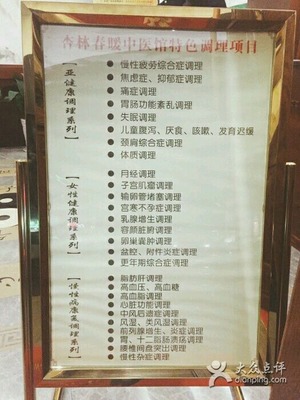 杏林春暖中医馆特色调理项目
【亚健康调理系列】
慢性疲劳综合症调理
焦虑症、抑郁症调理
痛症调理
胃肠功能紊乱调理
失眠调理
儿童腹泻、厌食、咳嗽、发育迟缓
颈肩综合症调理
体质调理
【女性健康调理系列】
月经调理
子宫肌瘤调理
输卵管堵塞调理
宫寒不孕症调理
乳腺增生调理
容颜脏腑调理
卵巢囊肿调理
盆腔、附件炎症调理
更年期综合症调理
【慢性病康复调理系列】
脂肪肝调理
高血压、高血糖
高血脂调理
心脏功能调理
中风后遗症调理
风湿、类风湿调理
前列腺增生、炎症调理
胃、十二指肠溃疡调理
腰椎间盘突出调理
慢性杂症调理
大众点评
dianping.com